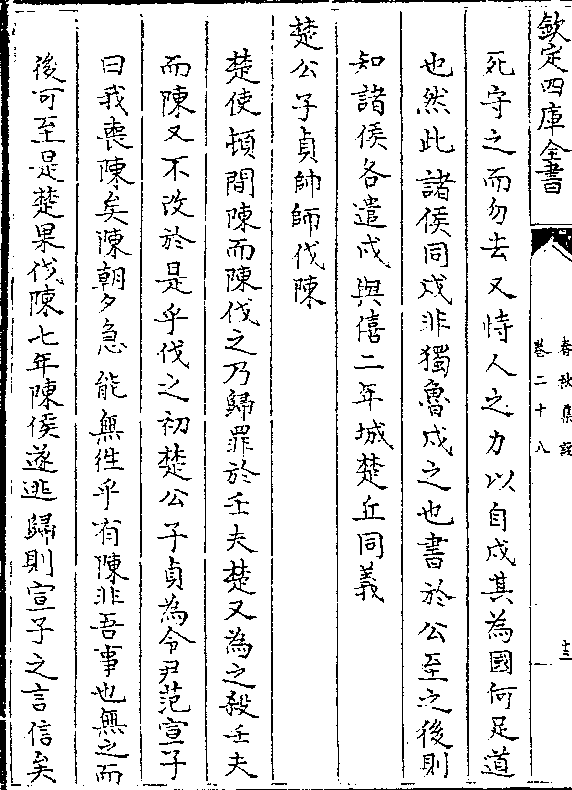 欽定四庫全書
春秋集註
卷二十八
十三
死守之而勿去又恃人之力以自戍其為國何足道
也然此諸侯同戍非獨魯戍之也書於公至之後則
知諸侯各遣戍與僖二年城楚丘同義
楚公子貞帥師伐陳
楚使頓間陳而陳伐之乃歸罪於壬夫楚又為之殺壬夫
而陳又不改於是乎伐之初楚公子貞為令尹范宣子
曰我喪陳矣陳朝夕急能無徃乎有陳非吾事也無之而
後可至是楚果伐陳七年陳侯遂逃歸則宣子之言信矣